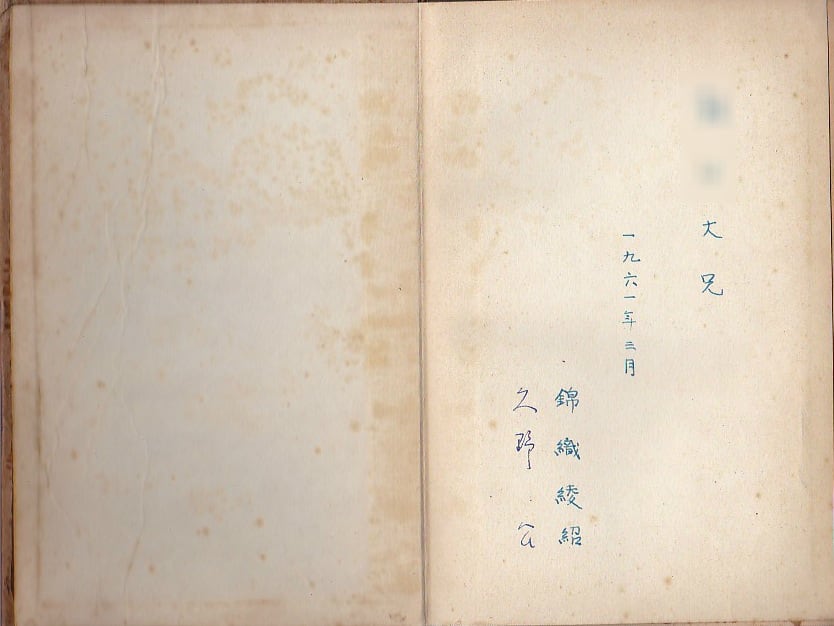 大兄
一九六一年三月
錦織綾紹
久野 公